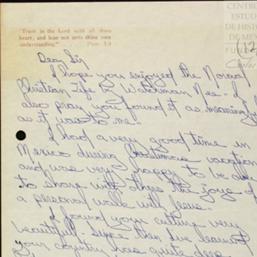 "Trust in the Lord with all thine
heart, and lean not unto thine own
understanding." Prov. 3:5
CENTRO
ESTUD
DE HIST
DE MEX
FUND
Dear Sir
I hope you enjoyed the Normal
Christian Life by Watchman Nee. I
also pray you found it as meaningful
as it was to me.
I had a very good time in
Mexico during Christmas vacation
and was very happy to be able
to share with others the joy of
a personal walk with Jesus.
I found your culture very
beautiful. Since then I've learned
your country has quite deep